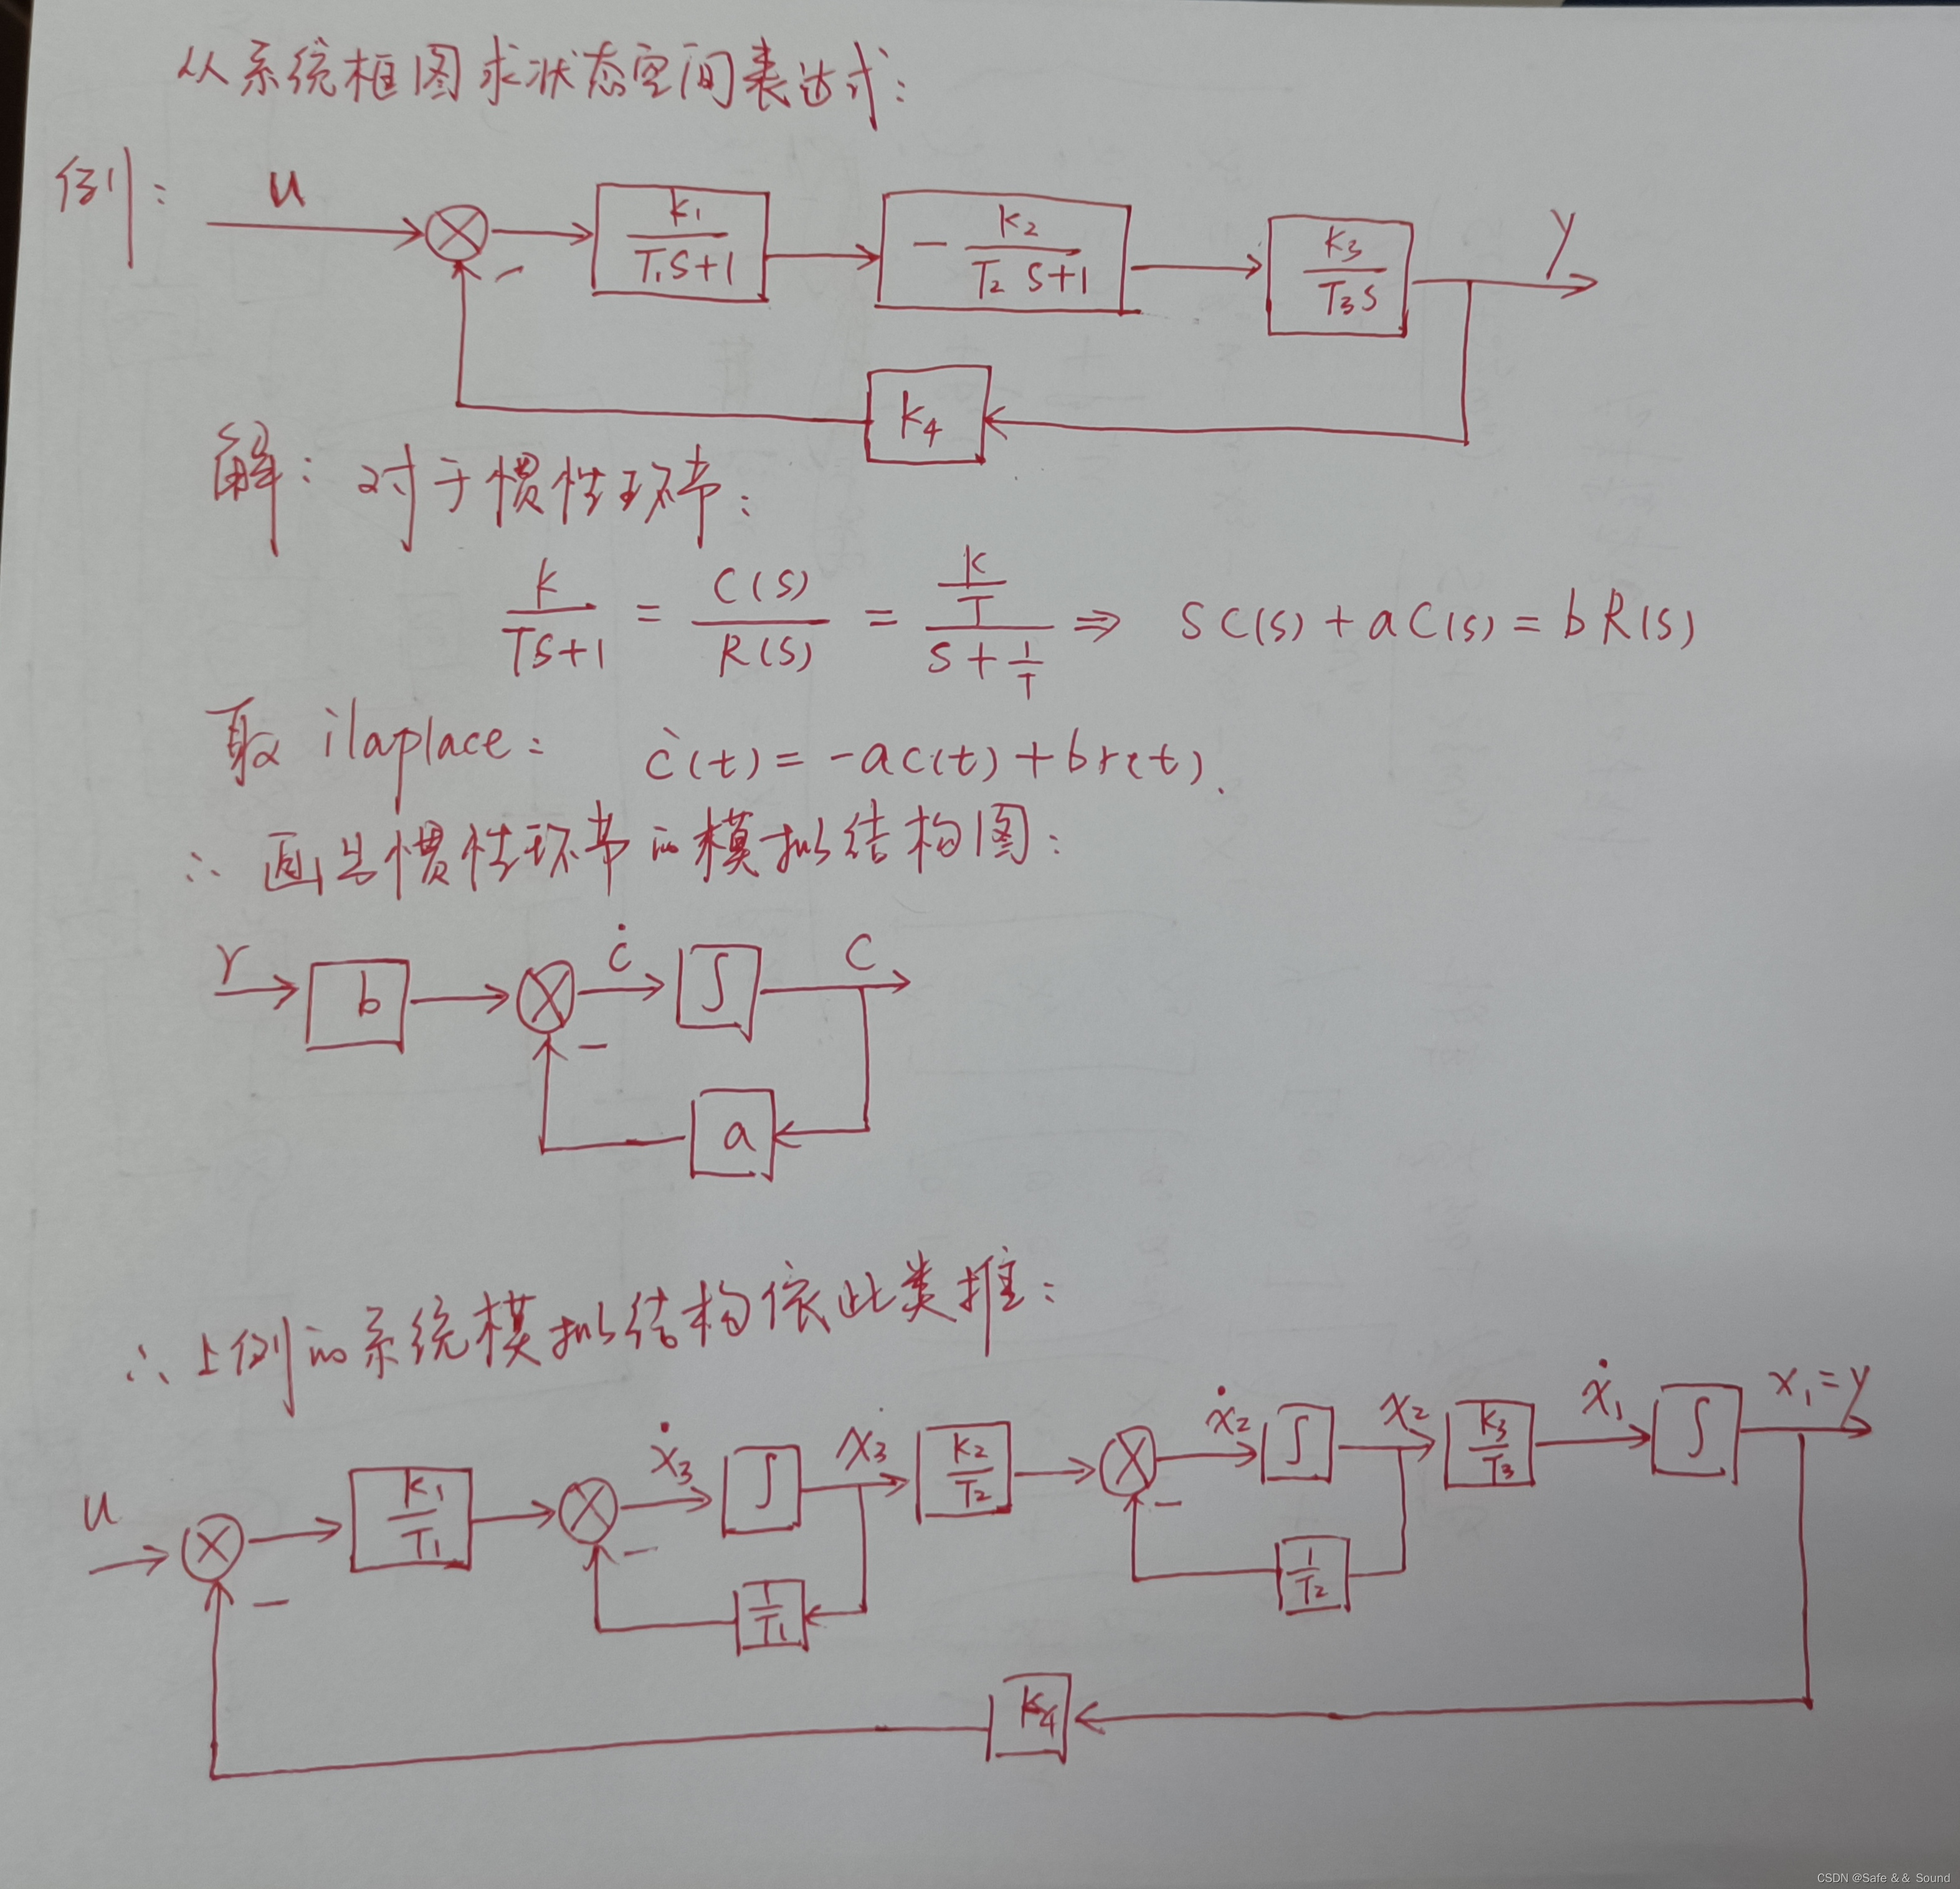 从系统框图求状态空间表达式:
例: u
K1/(T1S+1) -K2/(T2S+1) K3/(T3S) y
-
K4
解: 对于惯性环节:
K/(TS+1) = C(S)/R(S) = (K/T)/(S+1/T) ⇒ SC(S)+aC(S)=bR(S)
取ilaplace: ċ(t)=-ac(t)+br(t).
∴画出惯性环节的模拟结构图:
r b ċ ∫ C
-
a
∴上例的系统模拟结构依此类推:
u K1/T1 ẋ3 ∫ x3 K2/T2 ẋ2 ∫ x2 K3/T3 ẋ1 ∫ x1=y
- - -
1/T1 1/T2
K4
CSDN @Safe && Sound